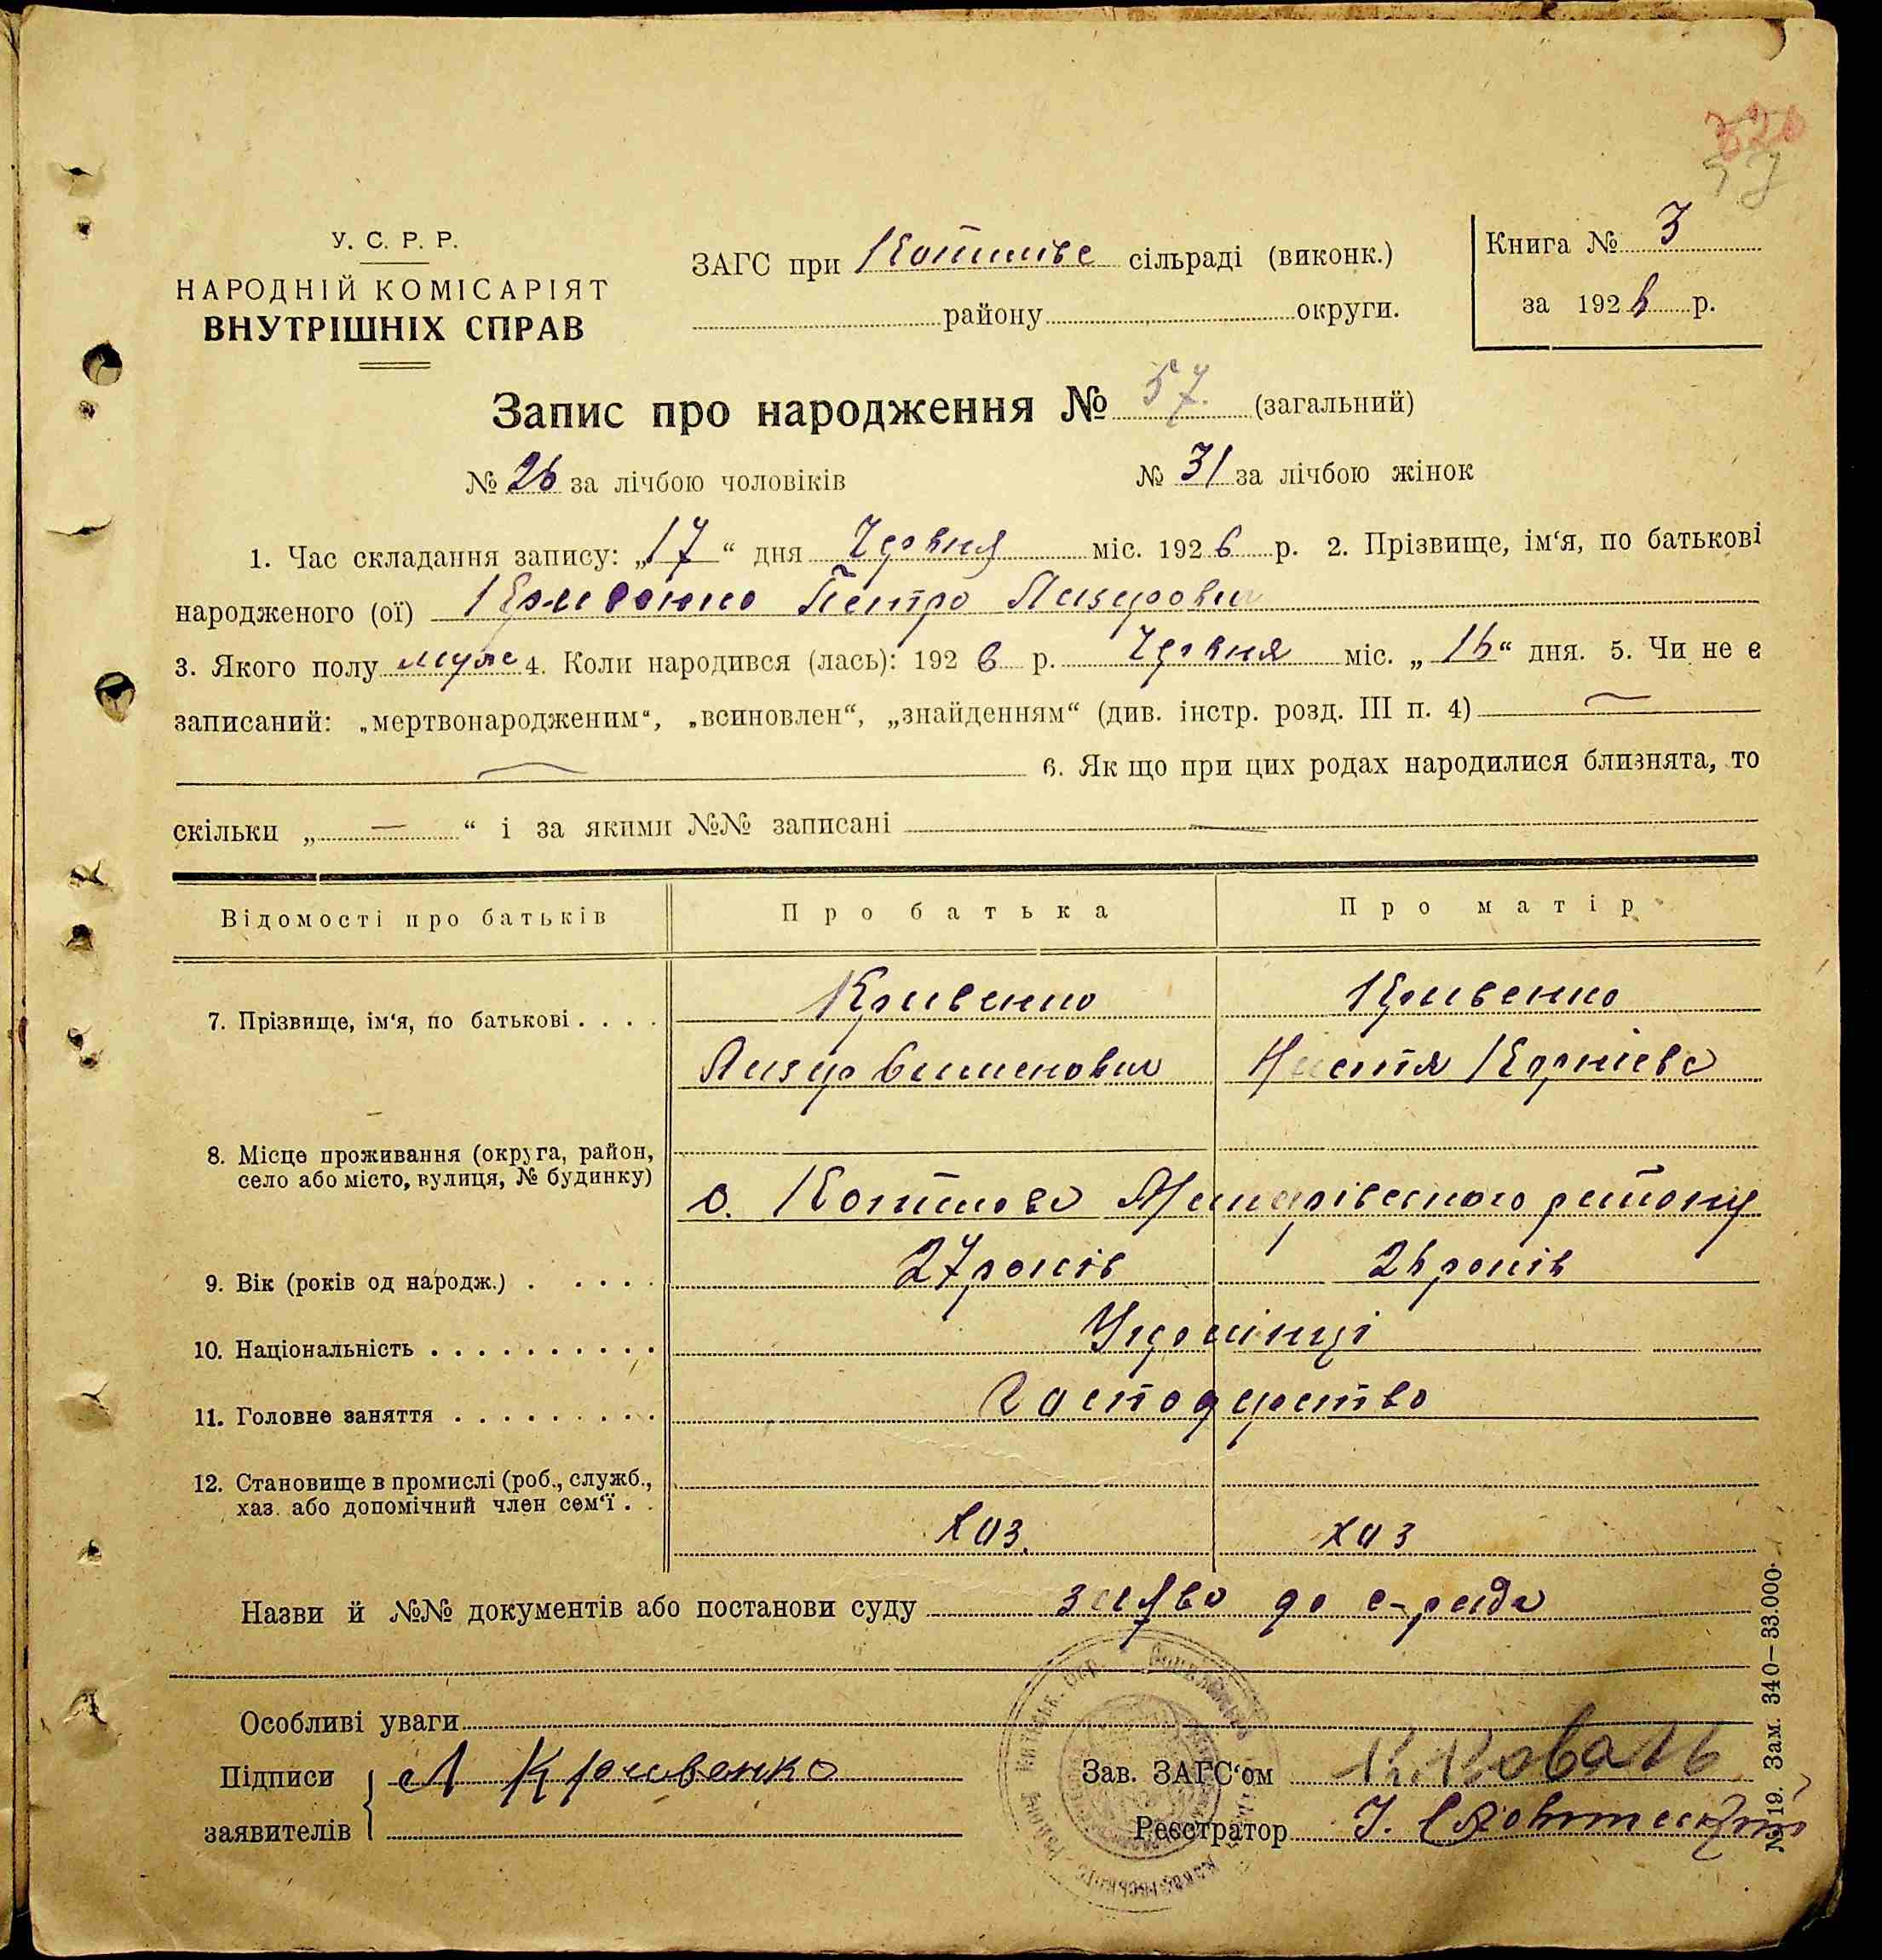 326
57
У. С. Р. Р.
НАРОДНІЙ КОМІСАРІЯТ
ВНУТРІШНІХ СПРАВ
ЗАГС при сільраді (виконк.)
району округи.
Книга № 3
за 1926 р.
Запис про народження № 57. (загальний)
№ 26 за лічбою чоловіків № 31 за лічбою жінок
1. Час складання запису: „17“ дня Червня міс. 1926 р. 2. Прізвище, ім‘я, по батькові
народженого (ої) Кривенко Петро Лазарович
3. Якого полу муже 4. Коли народився (лась): 1926 р. Червня міс. „16“ дня. 5. Чи не є
записаний: „мертвонародженим“, „всиновлен“, „знайденням“ (див. інстр. розд. III п. 4) —
— 6. Як що при цих родах народилися близнята, то
скільки „ — “ і за якими №№ записані —
Відомості про батьків Про батька Про матір
7. Прізвище, ім‘я, по батькові . . . . Кривенко Кривенко
Лазар Семенович Настя Корніева
8. Місце проживання (округа, район,
село або місто, вулиця, № будинку)
с. Макарівського району
9. Вік (років од народж.) . . . . . 27 років 26 років
10. Національність . . . . . . . . . . Українці
11. Головне заняття . . . . . . . . . Господарство
12. Становище в промислі (роб., служб.,
хаз. або допомічний член сем‘ї . .
хаз. хаз
Назви й №№ документів або постанови суду заява до с-ради
Особливі уваги
Підписи Л Кривенко Зав. ЗАГС‘ом К. Коваль
заявителів Реєстратор І.
№ 19. Зам. 340—33.000.